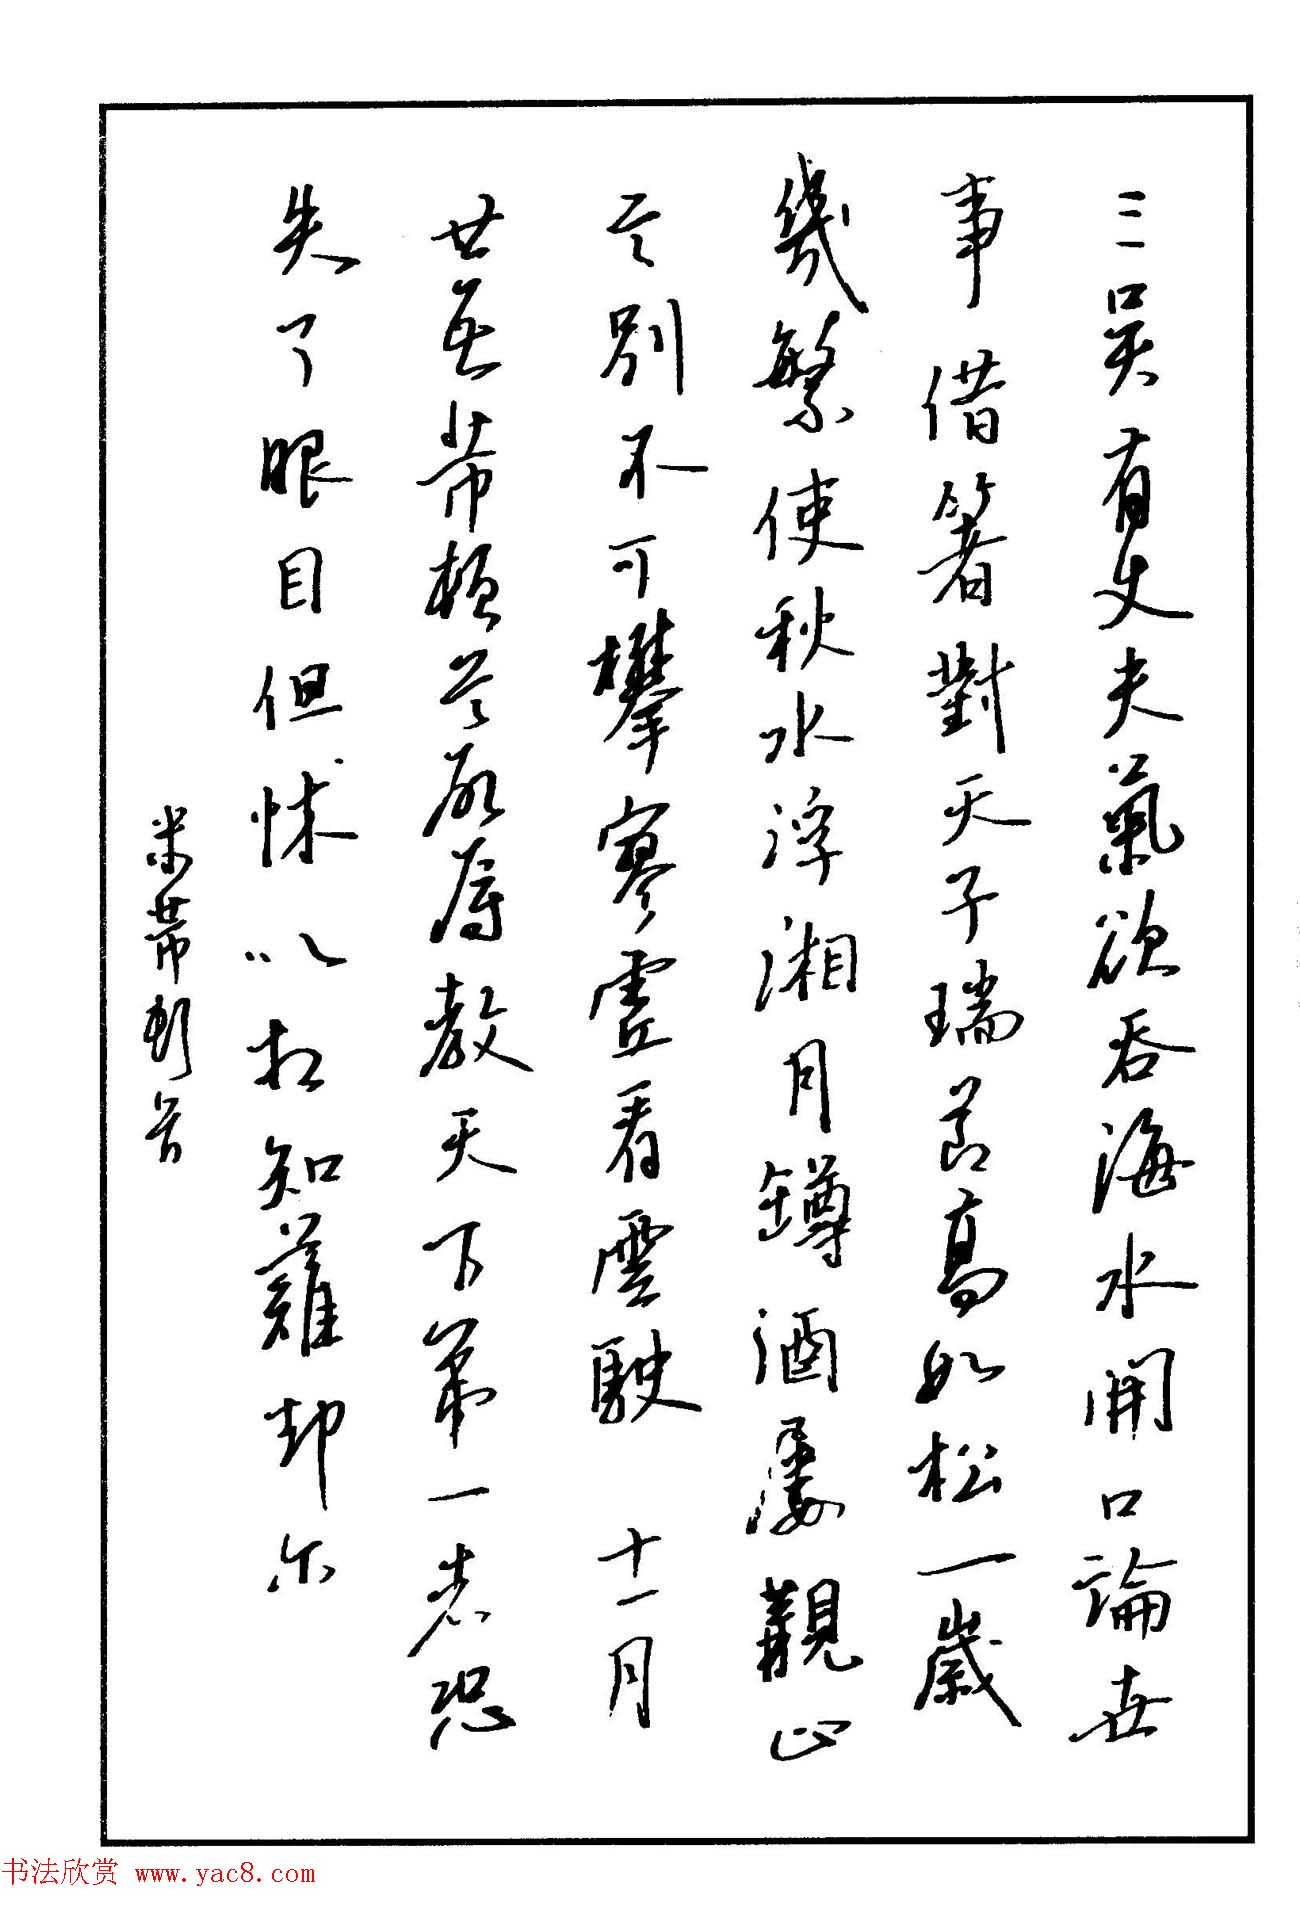 三吳有丈夫氣欲吞海水開口論世
事借箸對天子瑞節高如松一歲
幾繁使秋水浮湘月罇酒屢覯止
言別不可攀寥虛看雲駛 十一月
廿五芾頓首所辱教天下第一者恐
失了眼目但怵以相知難却尔
米芾頓首
书法欣赏 www.yac8.com